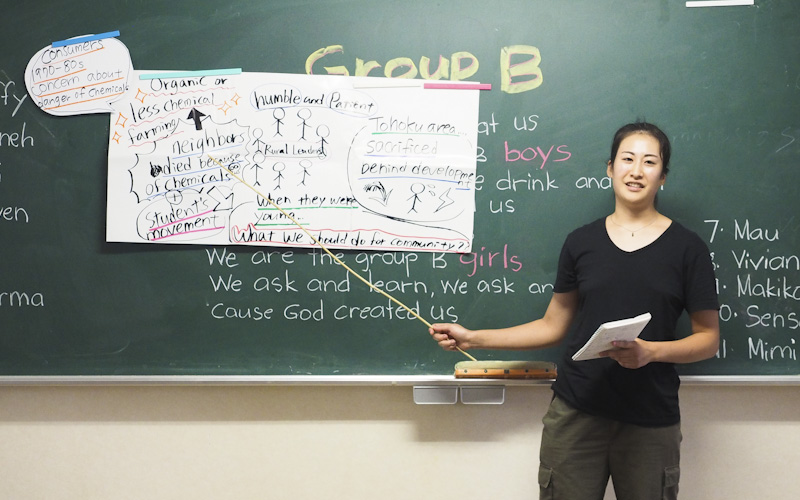 Group B
Consumers
1970-80s
concern about
danger of chemicals
Organic or
less chemical
farming
neighbors
died because
of chemicals
Student's
movement
humble and Patient
Rural Leaders
When they were
young...
What we should do for community??
Tohoku area...
sacrificed
behind developme
at us
B boys
e drink and
us
We are the group B girls
We ask and learn, we ask an
'cause God created us
fy
neh
i
ven
rma
7. Mau
Vivian
Makiko
10. Sens
11. Mimi